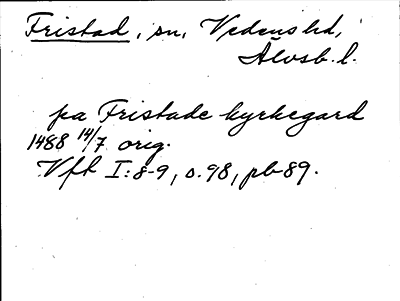 Fristad, sn, Vedens hd,
Älvsb. l.
pa Fristade kyrkegard
1488 14/7 orig.
Vft I: 8-9, s. 98, pb 89.